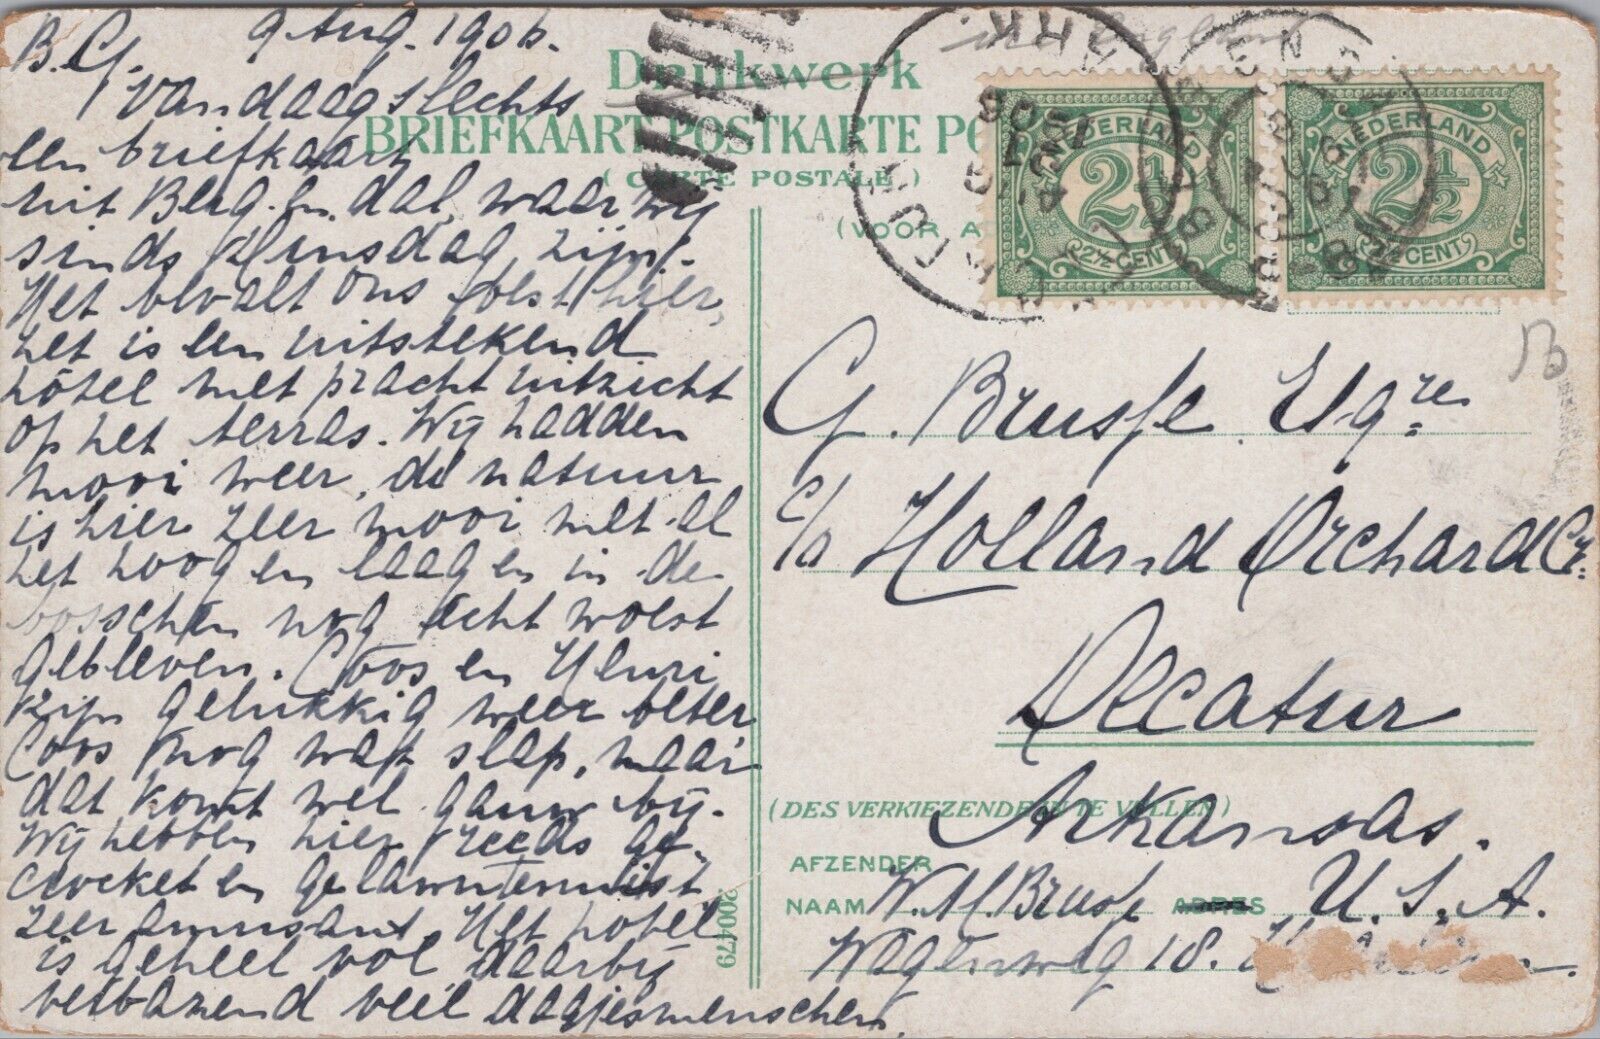 9 Aug. 1906.
B. G.
Vandaag slechts
een briefkaart
uit Berg en dal, waar wij
sinds Dinsdag zijn.
Het bevalt ons best hier,
het is een uitstekend
hôtel met pracht uitzicht
op het terras. Wij hadden
mooi weer, de natuur
is hier zeer mooi met al
het hoog en laag en in de
bosschen nog echt woest
gebleven. Coos en Henri
zijn gelukkig weer beter
Coos nog wat slap, maar
dat komt wel gauw bij.
Wij hebben hier reeds ge-
crocket en gelawntennist
zeer amusant. Het hotel
is geheel vol daarbij
verbazend veel dagjesmenschen.
Drukwerk
BRIEFKAART POSTKARTE PO
( CARTE POSTALE )
(VOOR A
NEDERLAND
2½
2½ CENT
NEDERLAND
2½
2½ CENT
G. Brusse Esqre
c/o Holland Orchard Co.
Decatur
(DES VERKIEZENDE IN TE VULLEN)
Arkansas.
AFZENDER
NAAM W. M. Brusse ADRES U. S. A.
Wagenweg 18.
200479